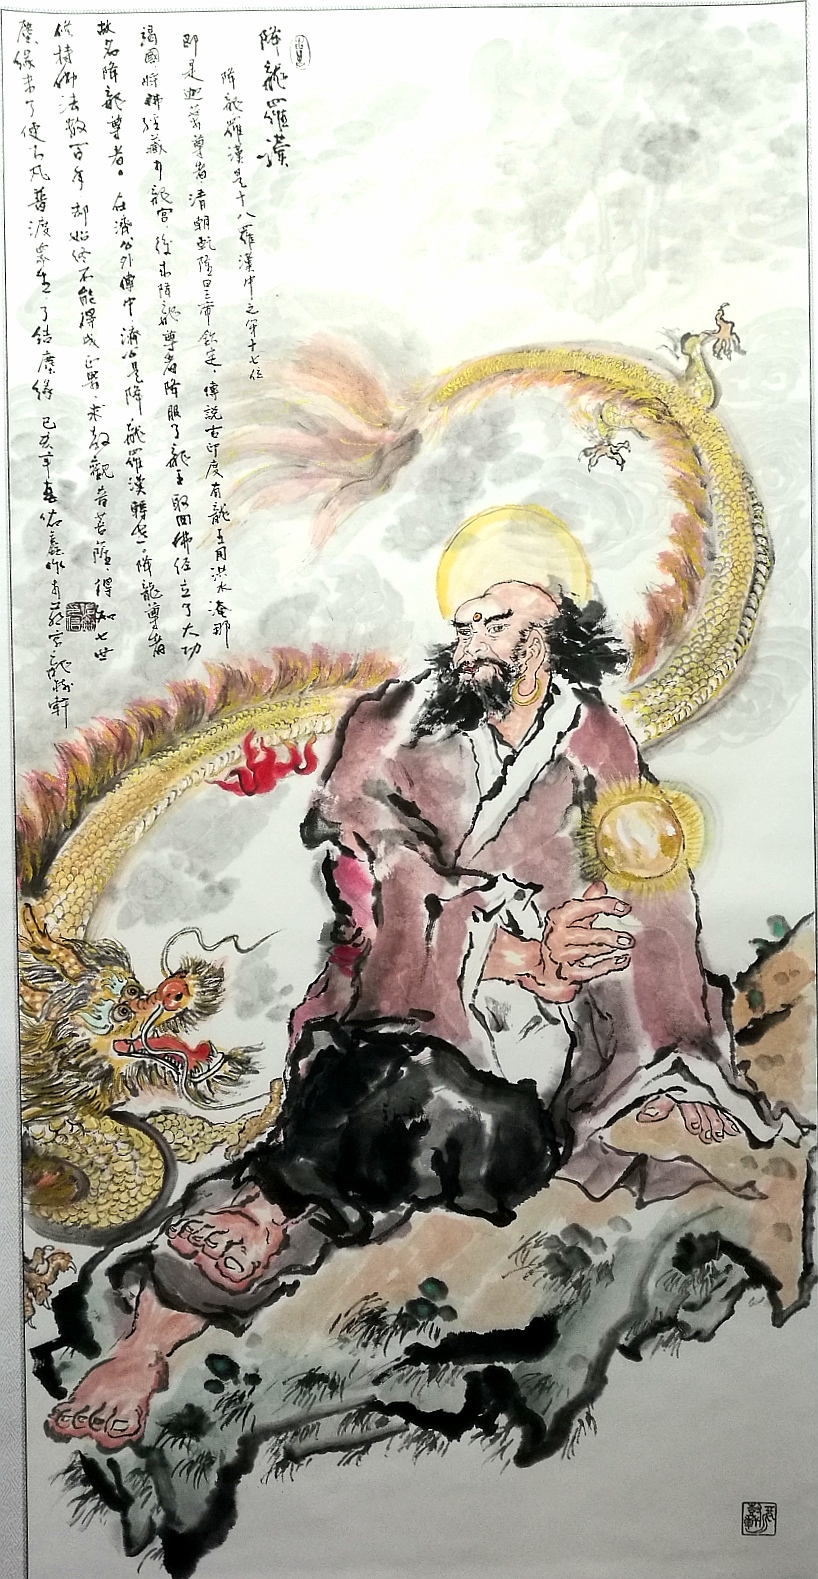 降龍羅漢
降龍羅漢是十八羅漢中之第十七位
即是迦葉尊者清朝乾隆皇帝欽定、傳説古印度有龍王用洪水淹那
竭國將佛經藏於龍宮、後來降龍尊者降服了龍王取回佛經立了大功
故名降龍尊者。在濟公外傳中濟公是降龍羅漢轉世。降龍尊者
修持佛法數百年却始終不能得成正果、求教觀音菩薩、得知七世
塵緣未了使下凡普渡眾生、了結塵緣 己亥年春佑